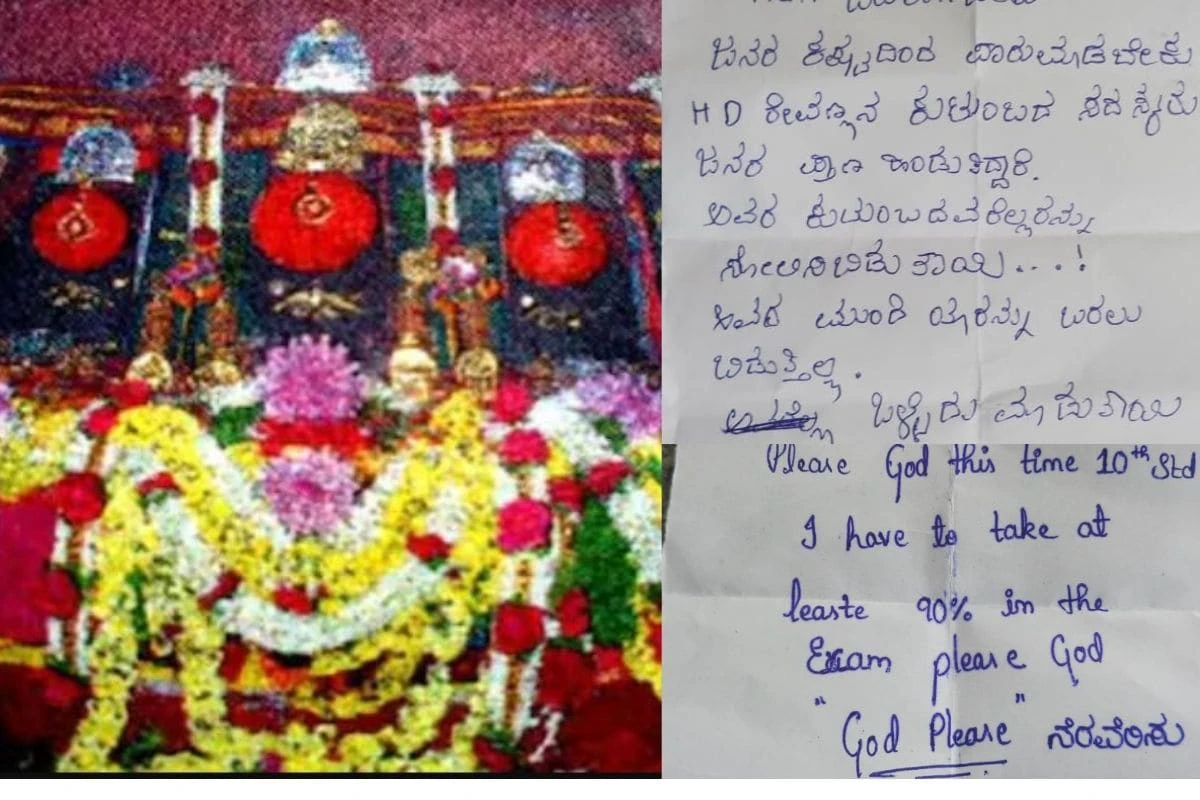 ಜನರ ಕಷ್ಟದಿಂದ ಪಾರುಮಾಡಬೇಕು
H D ರೇವಣ್ಣನ ಕುಟುಂಬದ ಸದಸ್ಯರು
ಜನರ ಪ್ರಾಣ ಹಿಂಡುತಿದ್ದಾರೆ.
ಅವರ ಕುಟುಂಬದವರೆಲ್ಲರನ್ನು
ಸೋಲಿಸಿಬಿಡು ತಾಯಿ...!
ಇವರ ಮುಂದೆ ಯಾರನ್ನು ಬರಲು
ಬಿಡುತ್ತಿಲ್ಲ.
ಒಳ್ಳೆದು ಮಾಡು ತಾಯಿ
Please God this time 10th Std
I have to take at
leaste 90% in the
Exam please God
"God Please" ನೆರವೇರಿಸು